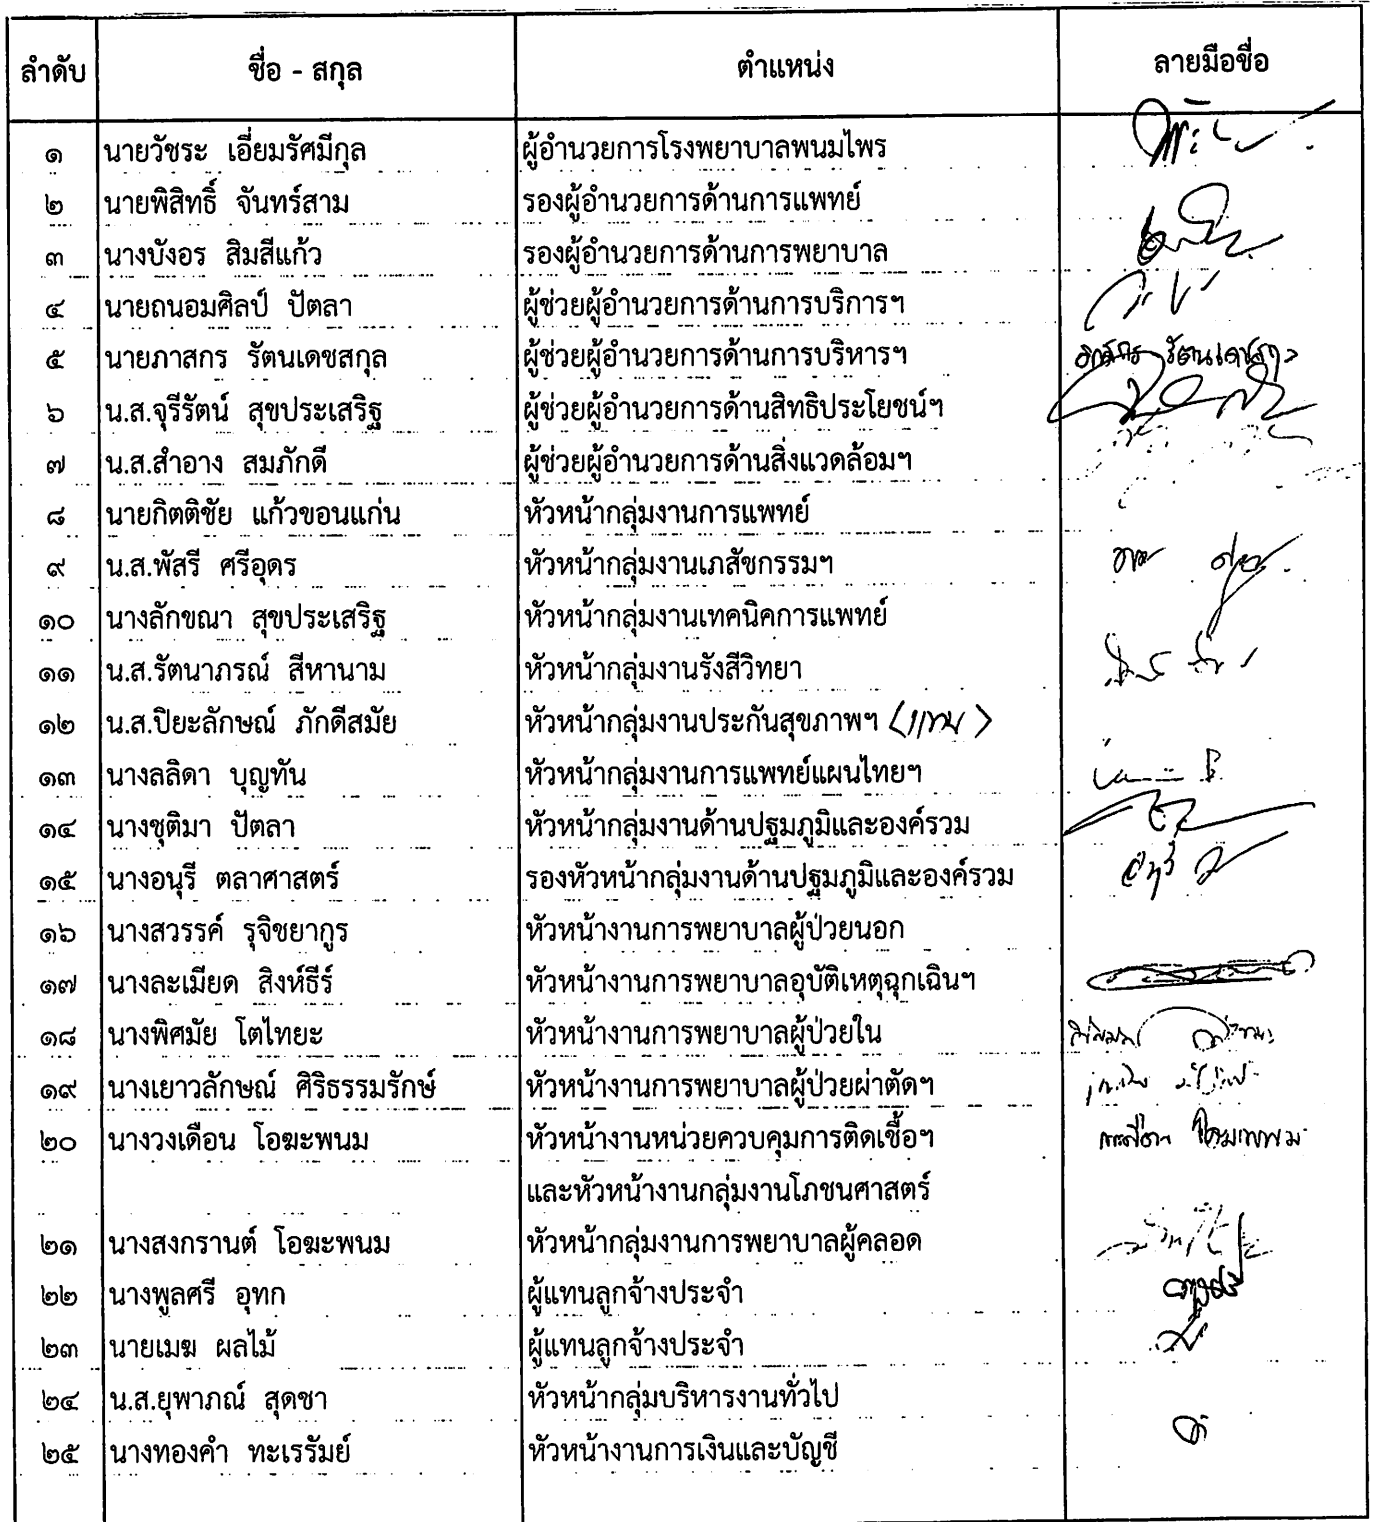 ลำดับ ชื่อ - สกุล ตำแหน่ง ลายมือชื่อ
๑ นายวัชระ เอี่ยมรัศมีกุล ผู้อำนวยการโรงพยาบาลพนมไพร
๒ นายพิสิทธิ์ จันทร์สาม รองผู้อำนวยการด้านการแพทย์
๓ นางบังอร สิมสีแก้ว รองผู้อำนวยการด้านการพยาบาล
๔ นายถนอมศิลป์ ปัตลา ผู้ช่วยผู้อำนวยการด้านการบริการฯ
๕ นายภาสกร รัตนเดชสกุล ผู้ช่วยผู้อำนวยการด้านการบริหารฯ
๖ น.ส.จุรีรัตน์ สุขประเสริฐ ผู้ช่วยผู้อำนวยการด้านสิทธิประโยชน์ฯ
๗ น.ส.สำอาง สมภักดี ผู้ช่วยผู้อำนวยการด้านสิ่งแวดล้อมฯ
๘ นายกิตติชัย แก้วขอนแก่น หัวหน้ากลุ่มงานการแพทย์
๙ น.ส.พัสรี ศรีอุดร หัวหน้ากลุ่มงานเภสัชกรรมฯ
๑๐ นางลักขณา สุขประเสริฐ หัวหน้ากลุ่มงานเทคนิคการแพทย์
๑๑ น.ส.รัตนาภรณ์ สีหานาม หัวหน้ากลุ่มงานรังสีวิทยา
๑๒ น.ส.ปิยะลักษณ์ ภักดีสมัย หัวหน้ากลุ่มงานประกันสุขภาพฯ (แทน)
๑๓ นางลลิดา บุญทัน หัวหน้ากลุ่มงานการแพทย์แผนไทยฯ
๑๔ นางชุติมา ปัตลา หัวหน้ากลุ่มงานด้านปฐมภูมิและองค์รวม
๑๕ นางอนุรี ตลาศาสตร์ รองหัวหน้ากลุ่มงานด้านปฐมภูมิและองค์รวม
๑๖ นางสวรรค์ รุจิชยากูร หัวหน้างานการพยาบาลผู้ป่วยนอก
๑๗ นางละเมียด สิงห์ธีร์ หัวหน้างานการพยาบาลอุบัติเหตุฉุกเฉินฯ
๑๘ นางพิศมัย โตไทยะ หัวหน้างานการพยาบาลผู้ป่วยใน
๑๙ นางเยาวลักษณ์ ศิริธรรมรักษ์ หัวหน้างานการพยาบาลผู้ป่วยผ่าตัดฯ
๒๐ นางวงเดือน โอฆะพนม หัวหน้างานหน่วยควบคุมการติดเชื้อฯ
และหัวหน้างานกลุ่มงานโภชนศาสตร์
๒๑ นางสงกรานต์ โอฆะพนม หัวหน้ากลุ่มงานการพยาบาลผู้คลอด
๒๒ นางพูลศรี อุทก ผู้แทนลูกจ้างประจำ
๒๓ นายเมฆ ผลไม้ ผู้แทนลูกจ้างประจำ
๒๔ น.ส.ยุพาภณ์ สุดชา หัวหน้ากลุ่มบริหารงานทั่วไป
๒๕ นางทองคำ ทะเรรัมย์ หัวหน้างานการเงินและบัญชี